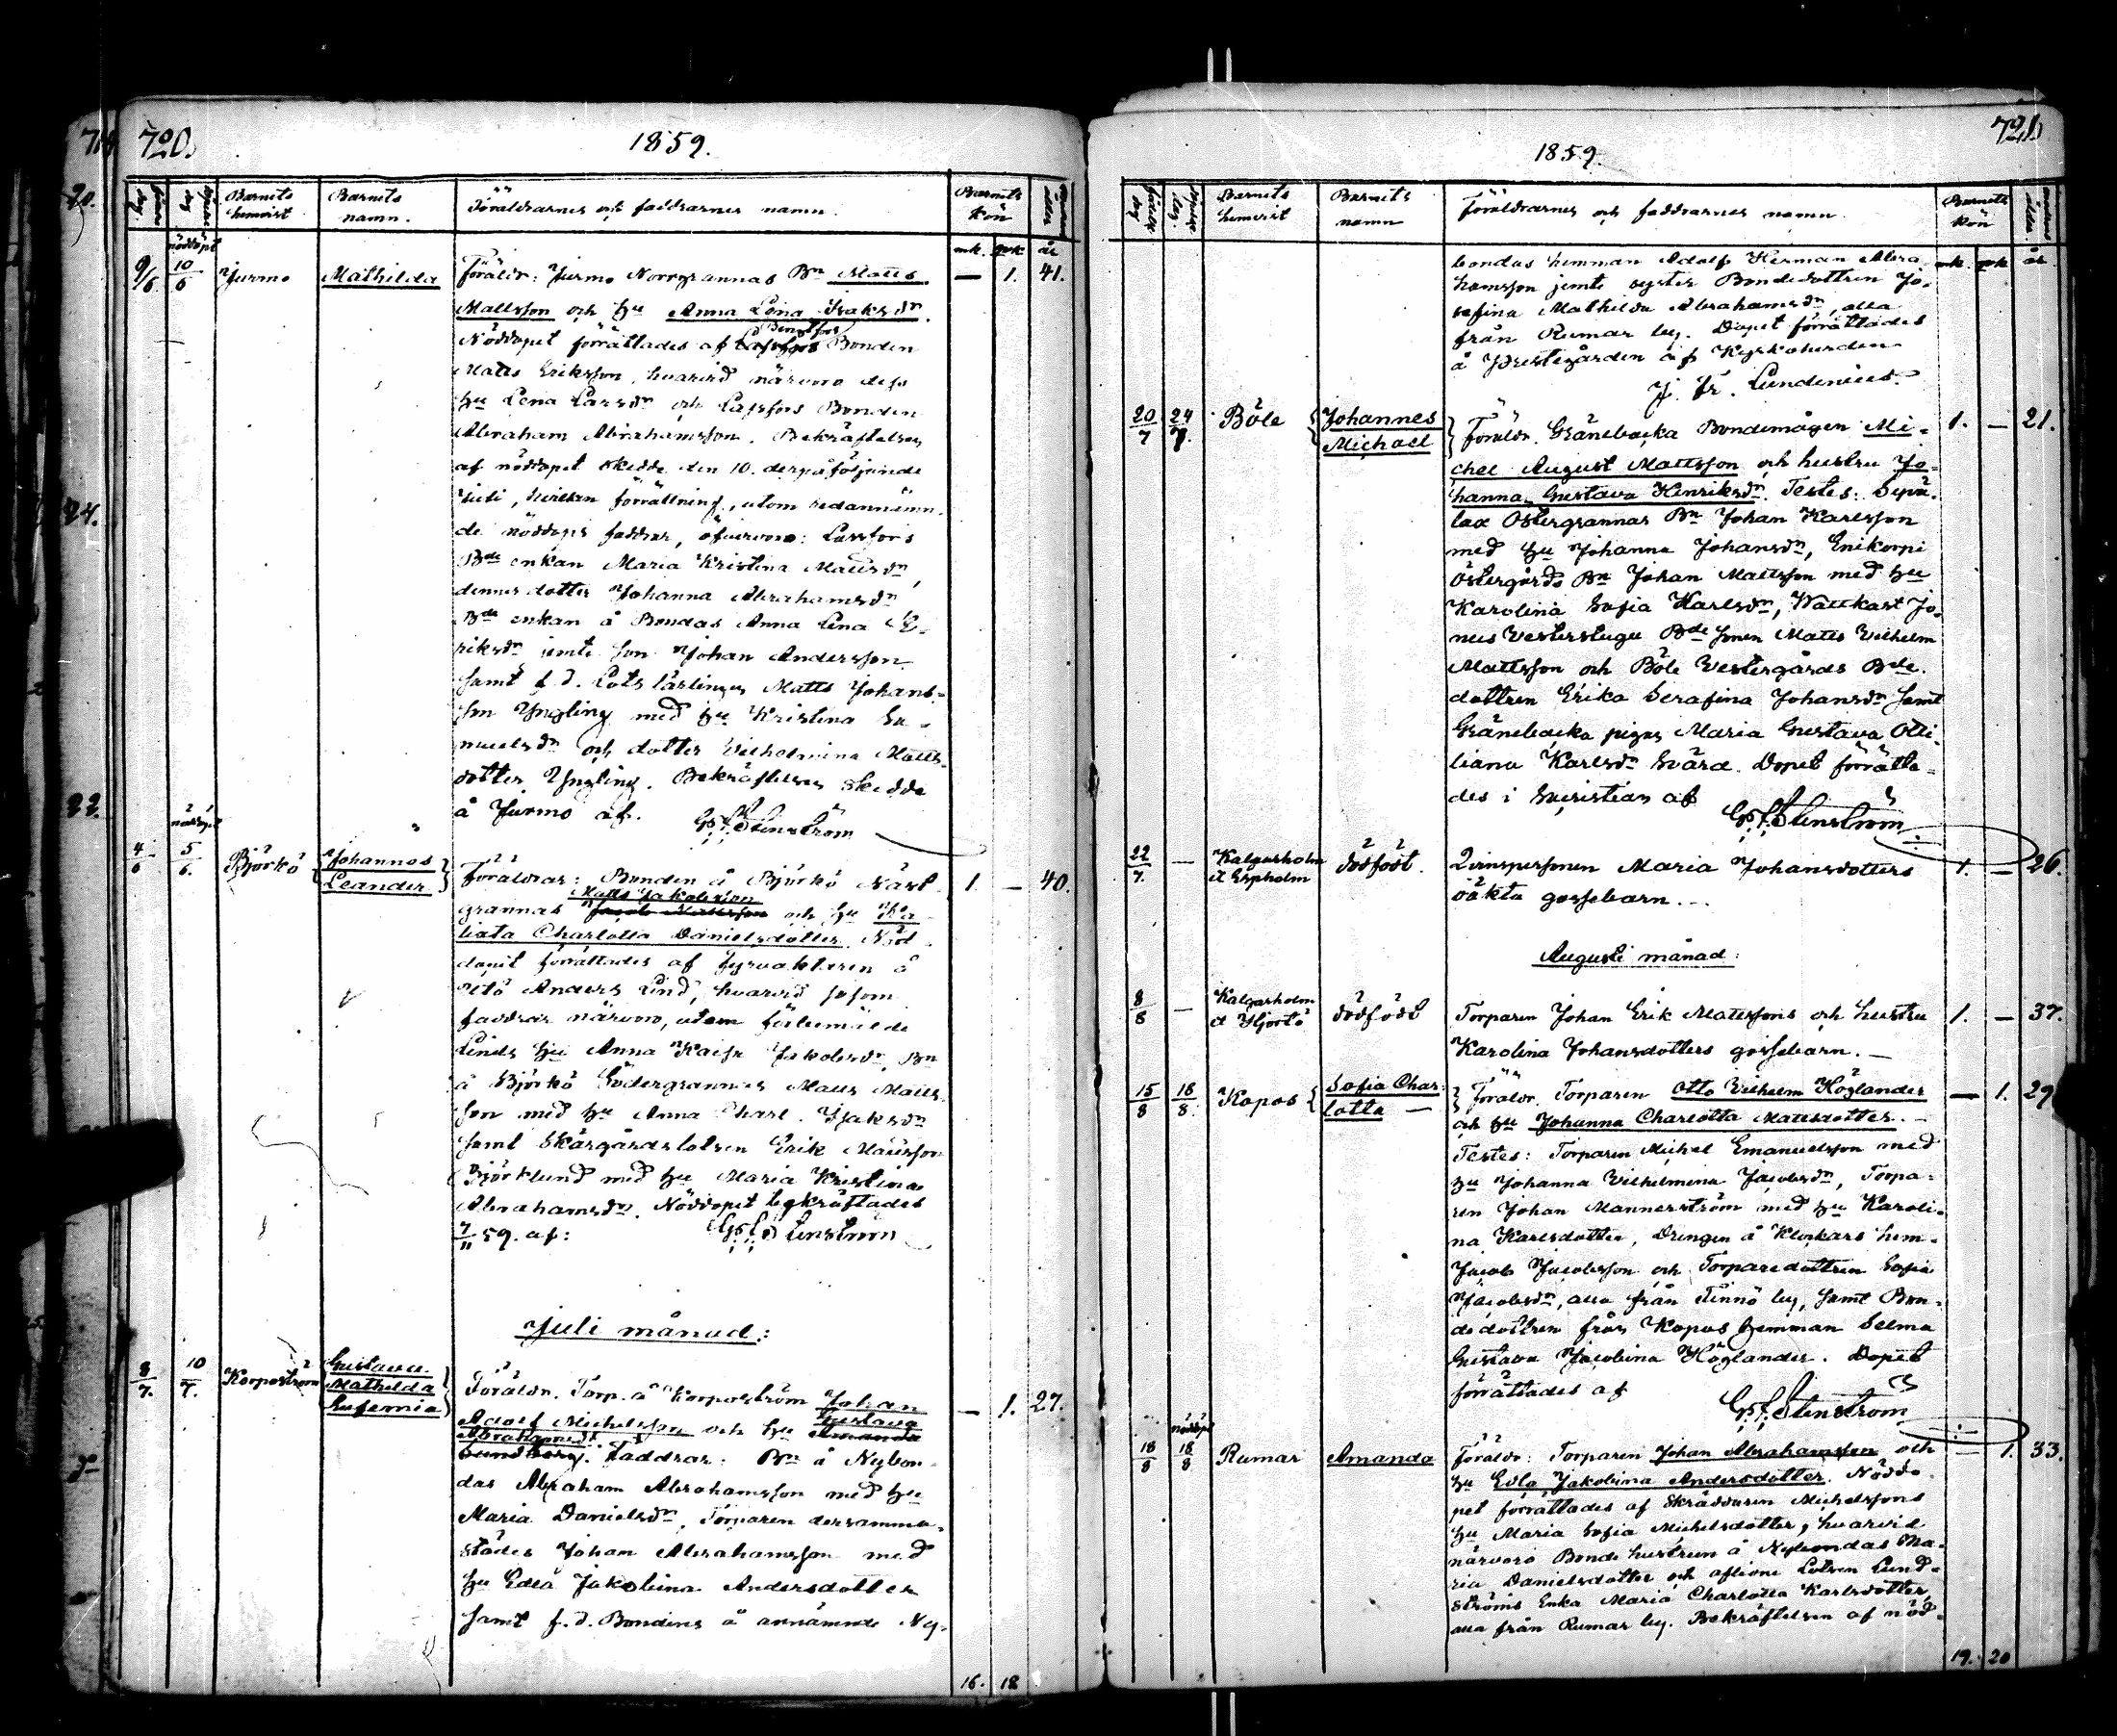 720.
1859.
Födelse dag
Döpelse dag
Barnets hemvist
Barnets namn.
Föräldrarnes och faddrarnes namn.
Barnets kön
mk. qvk. år
nöddöpt
9/6. 10/6 Jurmo Mathilda Föräldr: Jurmo Norrgrannas Bn Matts — 1. 41.
Mattsson och hu Anna Lena Isaksdn.
Nöddopet förrättades af Bengtsfors Bonden
Matts Eriksson, hvarvid närvoro dess
hu Lena Larsdn och Lassfors Bonden
Abraham Abrahamsson. Bekräftelsen
af nöddopet skedde den 10. derpåföljande
Juli, hvilken förrättning, utom redannämn
de nöddops faddrar, öfvervoro: Lassfors
Bde enkan Maria Kristina Mattsdn,
dennes dotter Johanna Abrahamsdn
Bde enkan å Bondas Anna Lena E-
riksdn jemte son Johan Andersson
samt f.d. Lots lärlingen Matts Johans-
son Yngling med hu Kristina Sa-
muelsdn och dotter Vilhelmina Matts-
dotter Yngling. Bekräftelsen skedde
å Jurmo af. G. F. Stenström
nöddöpt
4/6 5/6. Björkö Johannes Föräldrar: Bonden å Björkö Näst- 1. — 40.
Leander
Matts Jakobsson
grannas Jacob Mattsson och hu Ka-
Charlotta Danielsdotter. Nöd-
dopet förrättades af fyrvaktaren å
Utö Anders Lind, hvarvid såsom
faddrar närvoro, utom förbemälde
Linds hu Anna Kajsa Jakobsdn, Bn
å Björkö Södergrannas Matts Matts-
son med hu Anna Charl. Isaksdn
samt Skärgårdslotsen Erik Mattsson
Björklund med hu Maria Kristina
Abrahamsdn. Nöddopet bekräftades
7/11 59. af: G. F. Stenström
Juli månad:
8/7. 10/7. Korpoström Gustava Mathilda Eufemia
Föräldr. Torp. å Korpoström Johan — 1. 27.
Adolf Michelsson och hu Gustava Amanda
Abrahamsdr.
Lundberg. Faddrar: Bn å Nybon-
das Abraham Abrahamsson med hu
Maria Danielsdn, Torparen dersamma-
städes Johan Abrahamsson med
hu Edla Jakobina Andersdotter
samt f.d. Bondens å annämnde Ny-
16. 18
721.
1859.
Födelse dag
Döpelse dag.
Barnets hemvist
Barnets namn
Föräldrarnes och faddrarnes namn.
Barnets kön
mk. qvk. år
bondas hemman Adolf Herman Abra-
hamsson jemte syster Bondedottren Jo-
sefina Mathilda Abrahamsdn, alla
från Rumar by. Dopet förrättades
å Prestegården af Kyrkoherden
J. Fr. Lundenius.
20/7 24/7. Böle Johannes Michael Föräldr. Gränebacka Bondemågen Mi- 1. — 21.
chel August Mattsson och hustru Jo-
hanna Gustava Henriksdn. Testes: Sepä-
lax Östergrannas Bn Johan Karlsson
med hu Johanna Johansdn, Enikorpi
Östergårds Bn Johan Mattsson med hu
Karolina Sofia Karlsdn, Wattkast Jo-
neus Vesterstugu Bde sonen Matts Vilhelm
Mattsson och Böle Vestergårds Bde-
dottren Erika Serafina Johansdn samt
Gränebacka pigan Maria Gustava Otti-
liana Karlsdn Svärd. Dopet förrätta-
des i Sacristian af G. F. Stenström
22/7. — Kalgarholm dödfödt. Qvinspersonen Maria Johansdotters 1. — 26.
oäkta gossebarn. —
Augusti månad:
8/8 — Kalgarholm et Hjortö dödfödt Torparen Johan Erik Mattssons och hustru 1. — 37.
Karolina Johansdotters gossebarn. —
15/8 18/8. Kopos Sofia Char- Föräldr. Torparen Otto Vilhelm Höglander — 1. 29
lotta — och hu Johanna Charlotta Mattsdotter. —
Testes: Torparen Michel Emanuelsson med
hu Johanna Vilhelmina Jacobsdn, Torpa-
ren Johan Mannerström med hu Karoli-
na Karlsdotter, Drengen å Klockars hem-
Jacob Jacobsson och Torparedottren Sofia
Jacobsdn, alla från Finnö by, samt Bon-
dedottren från Kopos hemman Selma
Gustava Jacobina Höglander. Dopet
förrättades af G. F. Stenström
nöddöpt
18/8 18/8 Rumar Amanda Föräldr: Torparen Johan Abrahamsson och — 1. 33.
hu Edla Jakobina Andersdotter. Nöddo-
pet förrättades af Skräddaren Michelssons
hu Maria Sofia Michelsdotter, hvarvid
närvoro Bonde hustrun å Nybondas Ma-
ria Danielsdotter och aflidne Lotsen Lund-
ströms Enka Maria Charlotta Karlsdotter,
alla från Rumar by. Bekräftelsen af nöd-
19. 20